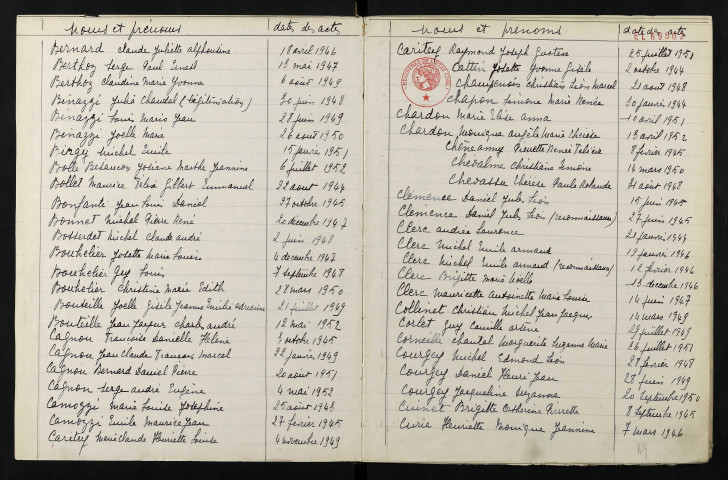 Noms et prénoms dates des actes
Bernard Claude Juliette Alphonsine 18 avril 1946
Berthoz Serge Paul Ernest 13 mai 1947
Berthoz Claudine Marie Yvonne 6 août 1949
Binazzi Julie Chantal (légitimation) 30 juin 1948
Binazzi Louis Mario Jean 28 juin 1949
Binazzi Joelle Marie 26 août 1950
Michel Emile 15 1951
Bolle Besançon Josiane Marthe Jeannine 6 juillet 1952
Bollet Maurice Gilbert Emmanuel 22 août 1944
Bonfanti Jean Louis Daniel 27 octobre 1945
Bonnet Michel Pierre René 20 décembre 1947
Bosserdet Michel Claude André 2 juin 1948
Bouthelier Josette Marie Louise 4 décembre 1947
Bouthelier Guy Louis 7 septembre 1948
Bouthelier Christine Marie Edith 28 mars 1950
Bouteille Joelle Gisèle Jeanne Emilie Adrienne 21 juillet 1949
Bouteille Jean Jacques Charles André 12 mai 1952
Cagnon Françoise Danielle Hélène 3 octobre 1945
Cagnon Jean Claude François Marcel 22 janvier 1949
Cagnon Bernard Daniel Pierre 20 août 1951
Cagnon Serge André Eugène 4 mai 1952
Camozzi Marie Louise Joséphine 25 août 1943
Camozzi Emile Maurice Jean 27 février 1945
Caritey Marie Claude Henriette Louise 4 novembre 1949
Noms et prénoms date des actes
Caritey Raymond Joseph Gustave 25 juillet 1951
Cattin Josette Yvonne Gisèle 2 octobre 1944
Champenois Christian Léon Marcel 21 août 1948
Chapon Simone Marie Renée 20 janvier 1944
Chardon Marie Elise Anna 10 avril 1951
Chardon Monique Angèle Marie Thérèse 13 avril 1952
Pierrette Renée 8 février 1945
Chevalme Christiane Simone 14 mars 1950
Chevassu Thérèse Paule Rolande 31 août 1948
Clémence Daniel Jules Léon 15 juin 1945
Clemence Daniel Jules Léon (reconnaissance) 27 juin 1945
Clerc Andrée Laurence 21 janvier 1945
Clerc Michel Emile Armand 19 janvier 1946
Clerc Michel Emile Armand (reconnaissance) 12 février 1946
Clerc Brigitte Marie 13 décembre 1946
Clerc Mauricette Antoinette Marie Louise 14 juin 1947
Collinet Christian Michel Jean Jacques 14 mars 1949
Corlet Guy Camille Arsène 29 juillet 1949
Corneille Chantal Marguerite Suzanne Marie 26 juillet 1951
Courgey Michel Edmond Léon 27 février 1948
Courgey Daniel Henri Jean 28 juin 1949
Courgey Jacqueline Suzanne 20 septembre 1950
Cuinet Brigitte Catherine Pierrette 8 septembre 1945
Curie Henriette Monique Jeannine 7 mars 1946